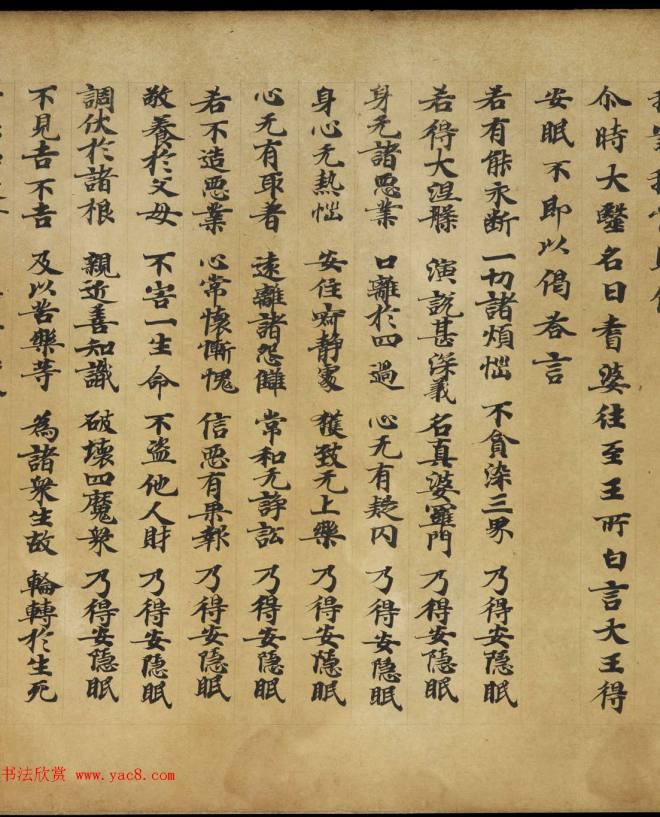 尒時大醫名曰耆婆往至王所白言大王得
安眠不即以偈荅言
若有能永断 一切諸煩惱 不貪染三界 乃得安隱眠
若得大涅槃 演說甚深義 名真婆羅門 乃得安隱眠
身无諸惡業 口離於四過 心无有疑冈 乃得安隱眠
身心无熱惱 安住寂静處 獲致无上樂 乃得安隱眠
心无有取著 遠離諸怨讎 常和无諍訟 乃得安隱眠
若不造惡業 心常懷慚愧 信惡有果報 乃得安隱眠
敬養於父母 不害一生命 不盗他人財 乃得安隱眠
調伏於諸根 親近善知識 破壞四魔衆 乃得安隱眠
不見吉不吉 及以苦樂等 為諸衆生故 輪轉於生死
书法欣赏 www.yac8.com